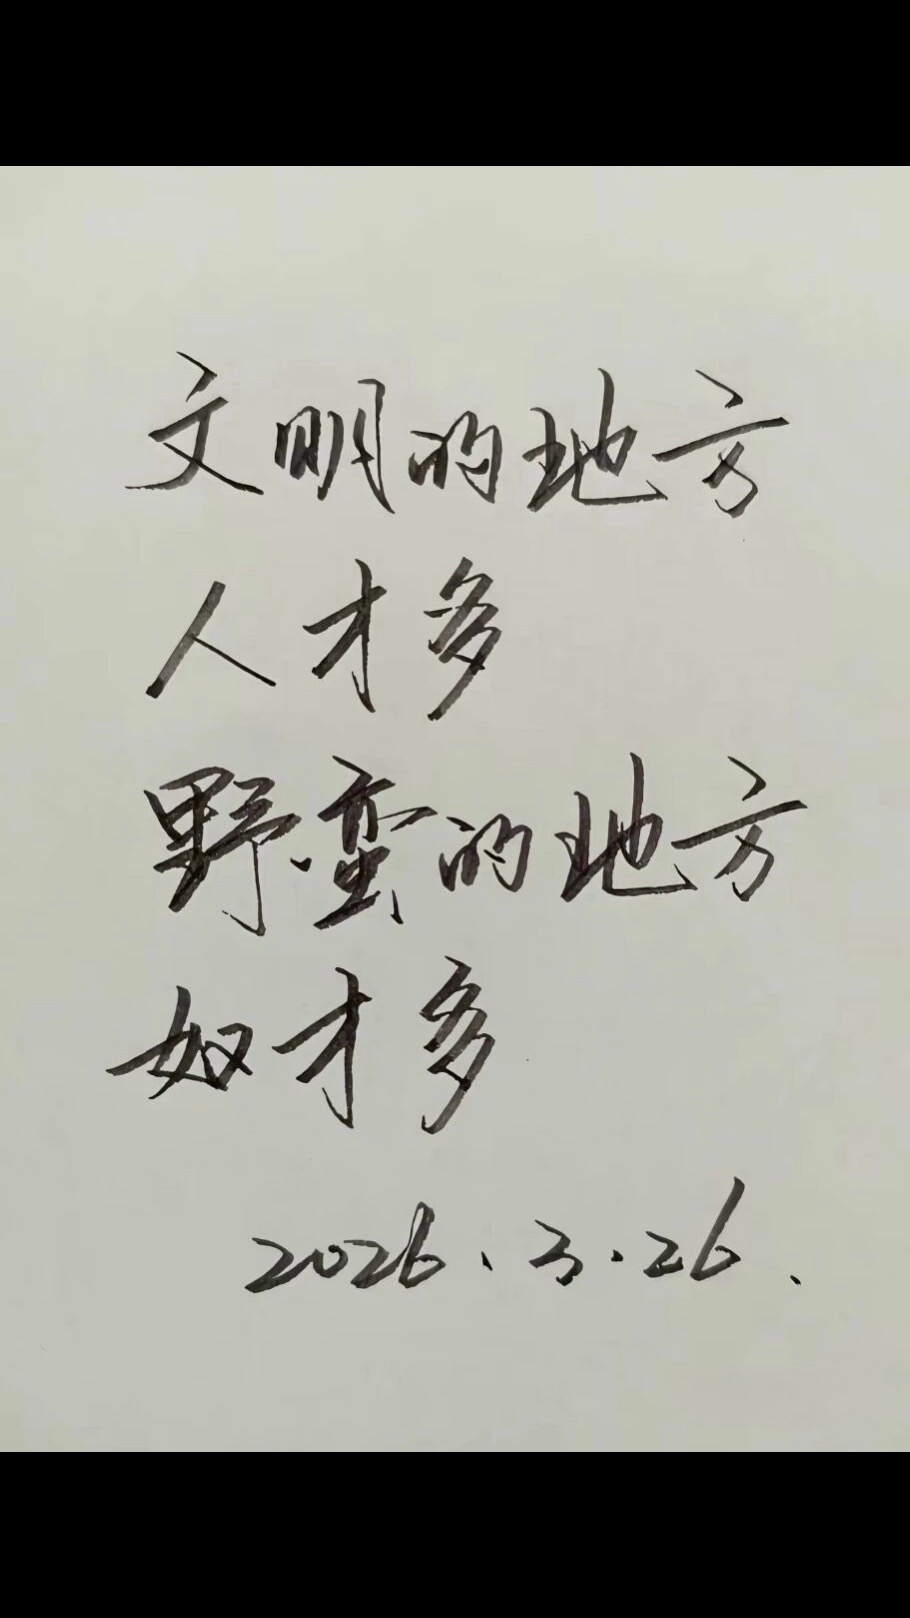 文明的地方
人才多
野蛮的地方
奴才多
2026.3.26.